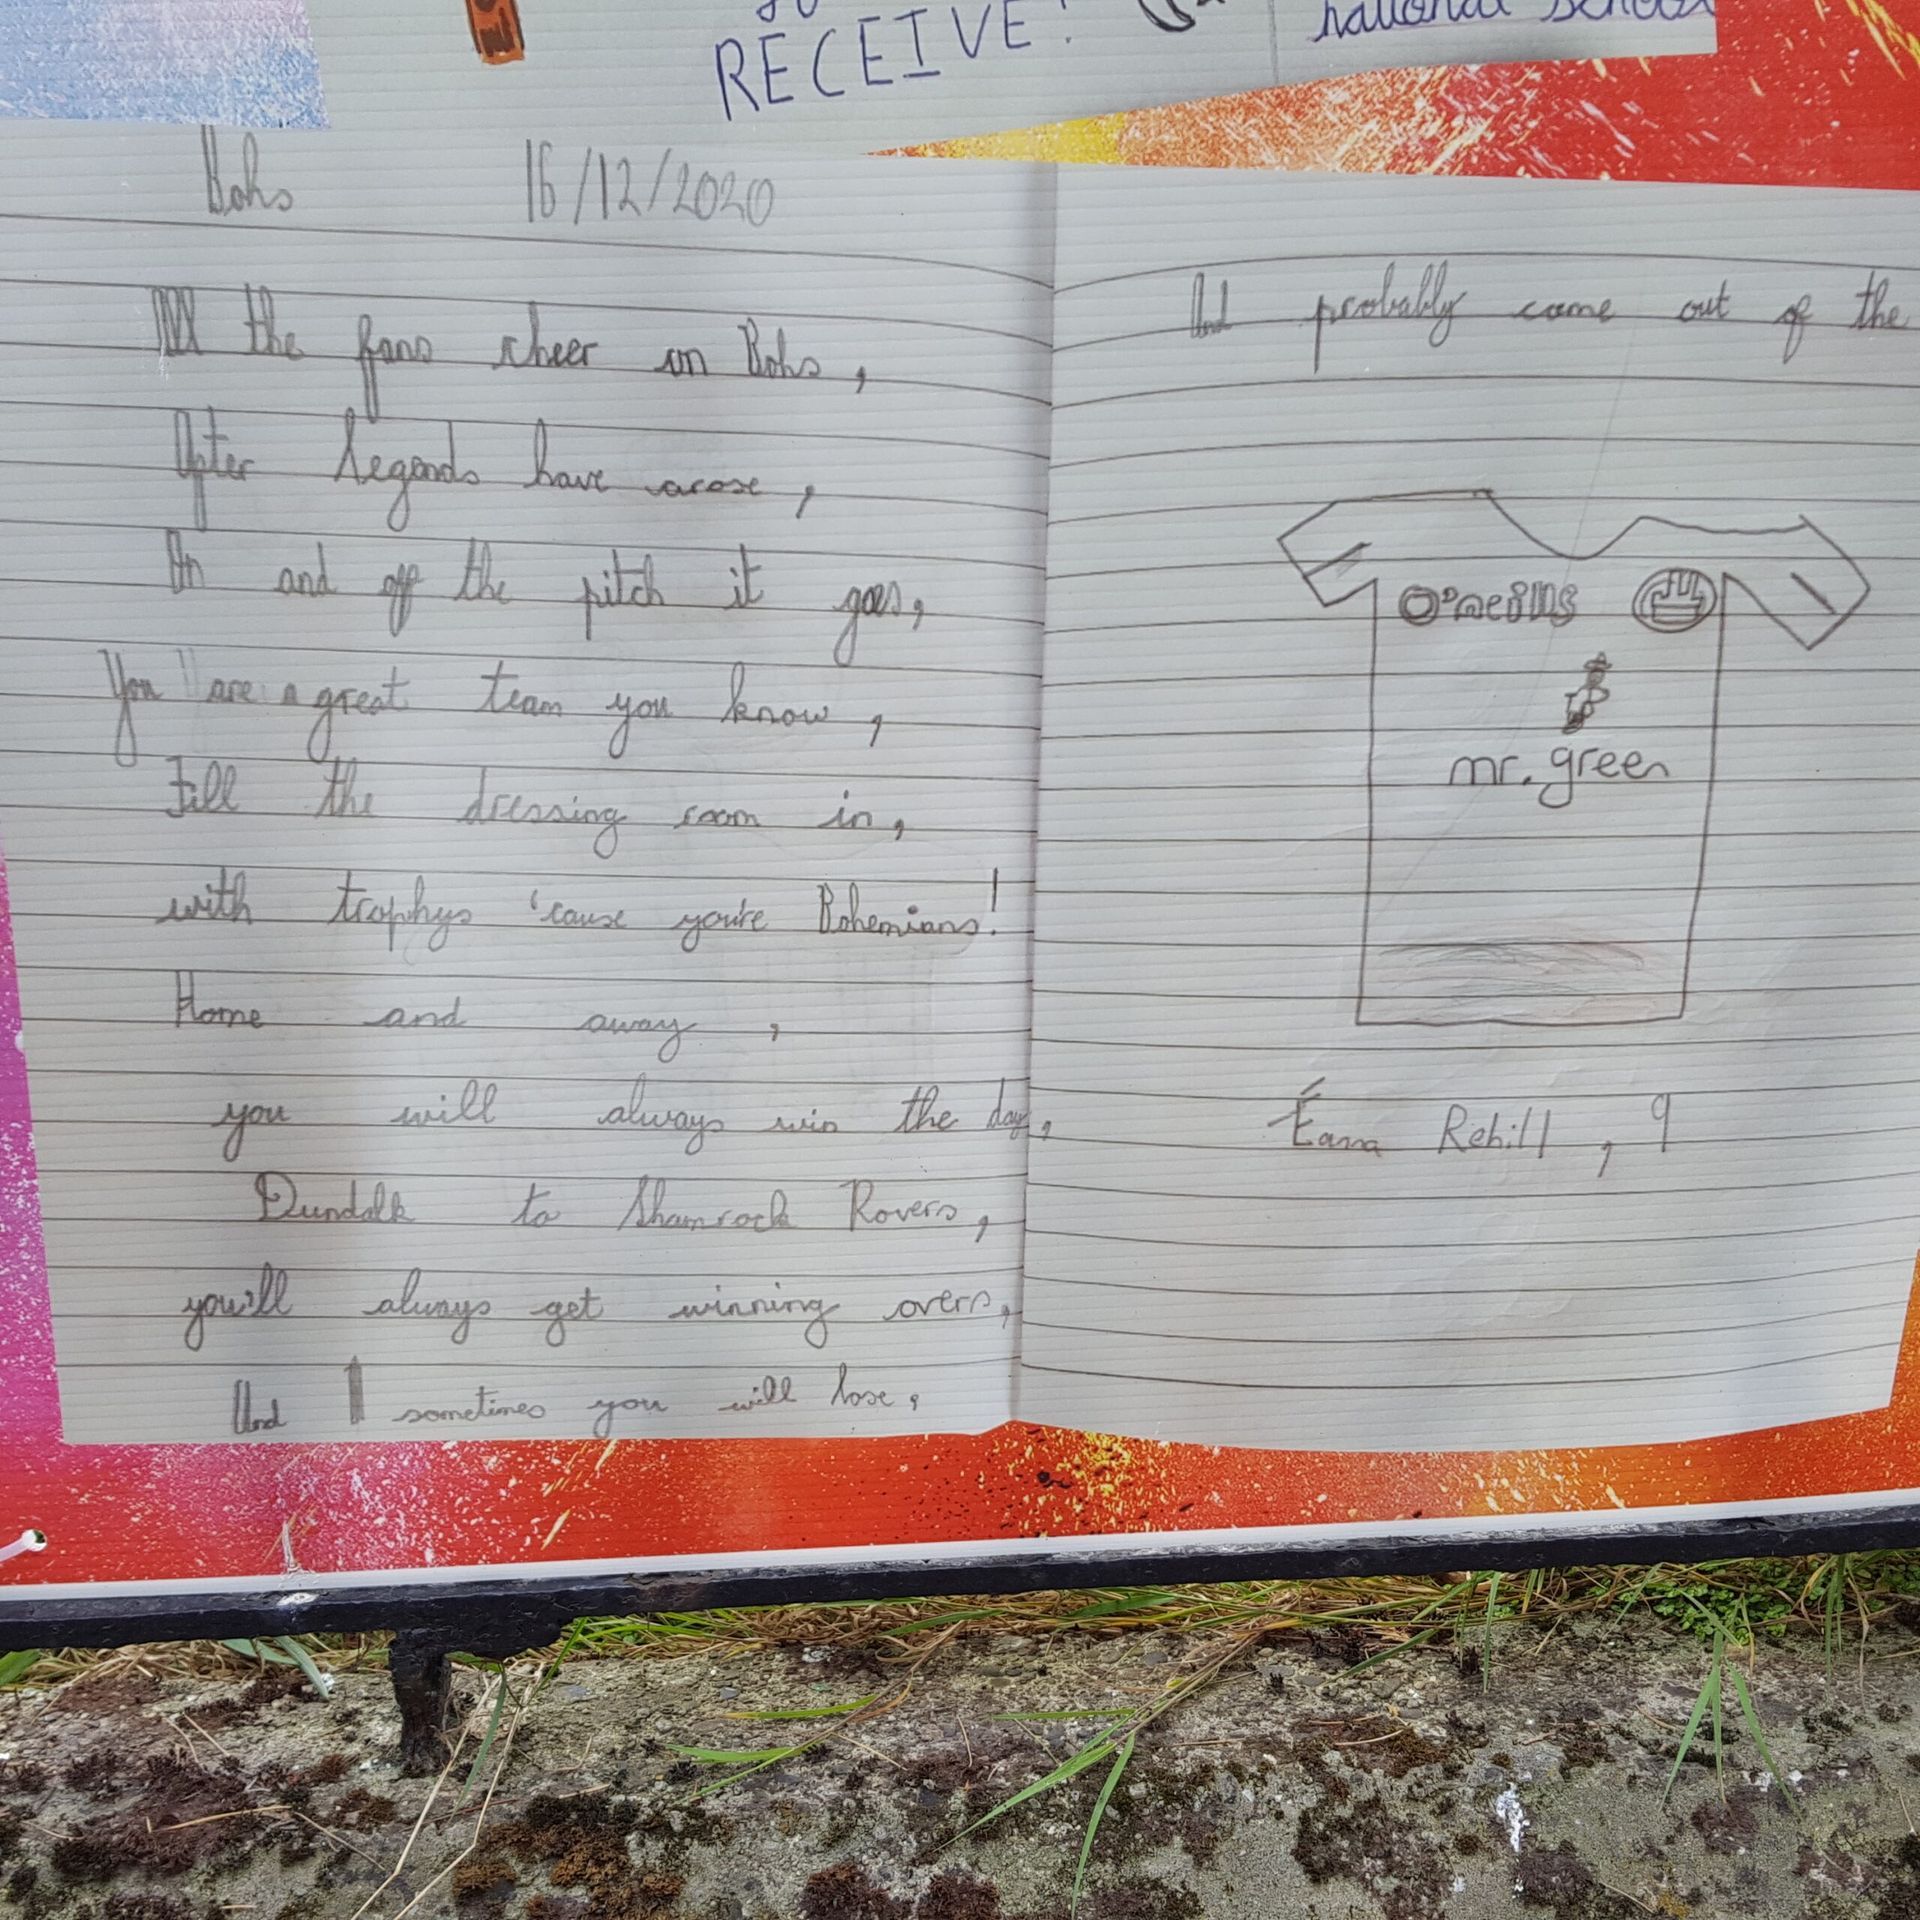 RECEIVE!
national school
Bohs 16/12/2020
All the fans cheer on Bohs,
After legends have arose,
On and off the pitch it goes,
You are a great team you know,
Fill the dressing room in,
with trophys 'cause you're Bohemians!
Home and away,
you will always win the day,
Dundalk to Shamrock Rovers,
you'll always get winning overs,
And sometimes you will lose,
And probably come out of the
O'neills
mr. green
Éanna Rehill, 9